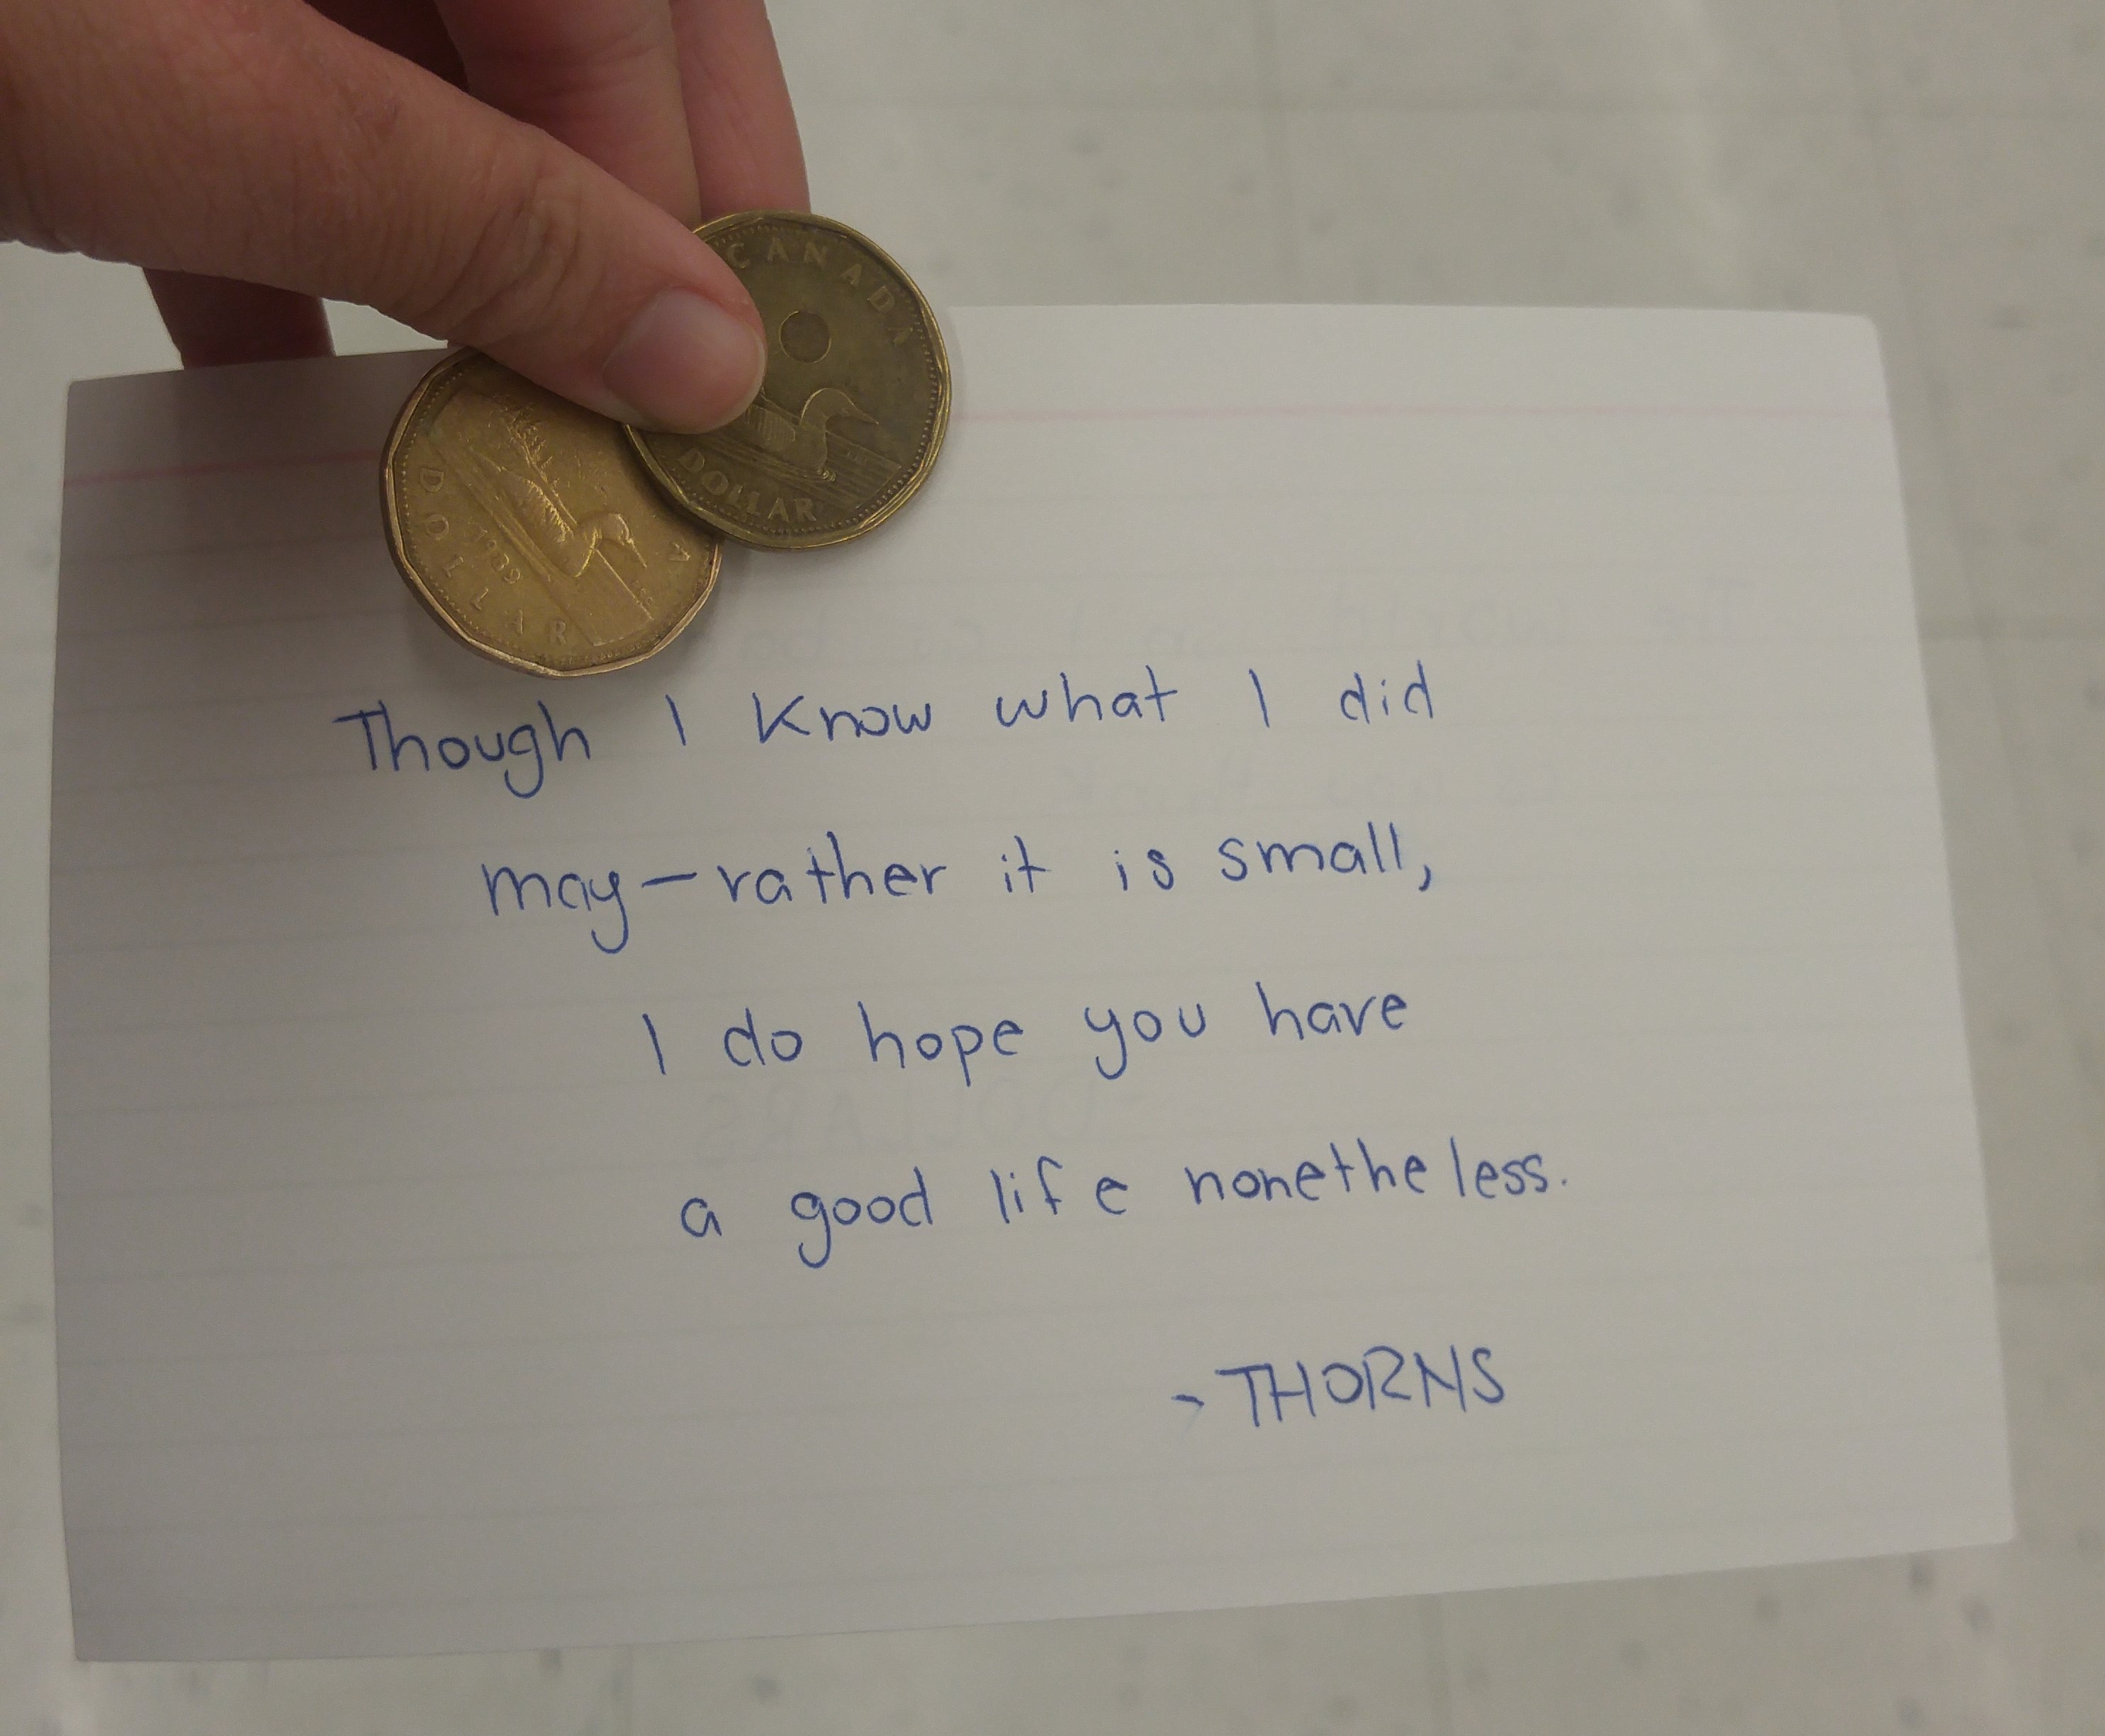 CANADA
DOLLAR
DOLLAR
1989
A
Though I know what I did
may—rather it is small,
I do hope you have
a good life nonetheless.
- THORNS
DOLLARS